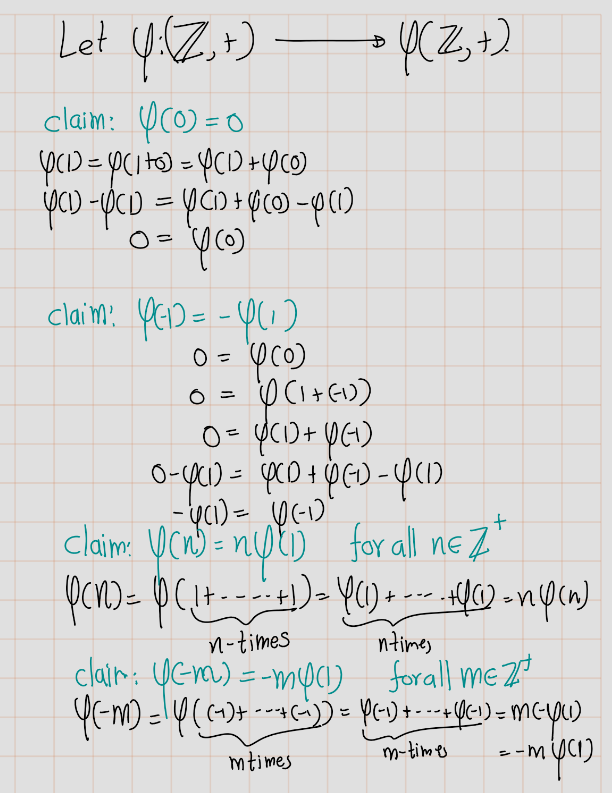 Let φ:(ℤ,+) ⟶ φ(ℤ,+).
claim: φ(0) = 0
φ(1) = φ(1+0) = φ(1) + φ(0)
φ(1) - φ(1) = φ(1) + φ(0) - φ(1)
0 = φ(0)
claim: φ(-1) = - φ(1)
0 = φ(0)
0 = φ(1+(-1))
0 = φ(1) + φ(-1)
0 - φ(1) = φ(1) + φ(-1) - φ(1)
-φ(1) = φ(-1)
claim: φ(n) = nφ(1) for all n∈ℤ⁺
φ(n) = φ(1+-----+1) = φ(1)+----+φ(1) = nφ(n)
n-times n times
claim: φ(-m) = -mφ(1) for all m∈ℤ⁺
φ(-m) = φ((-1)+---+(-1)) = φ(-1)+---+φ(-1) = m(-φ(1)
m times m-times = -mφ(1)